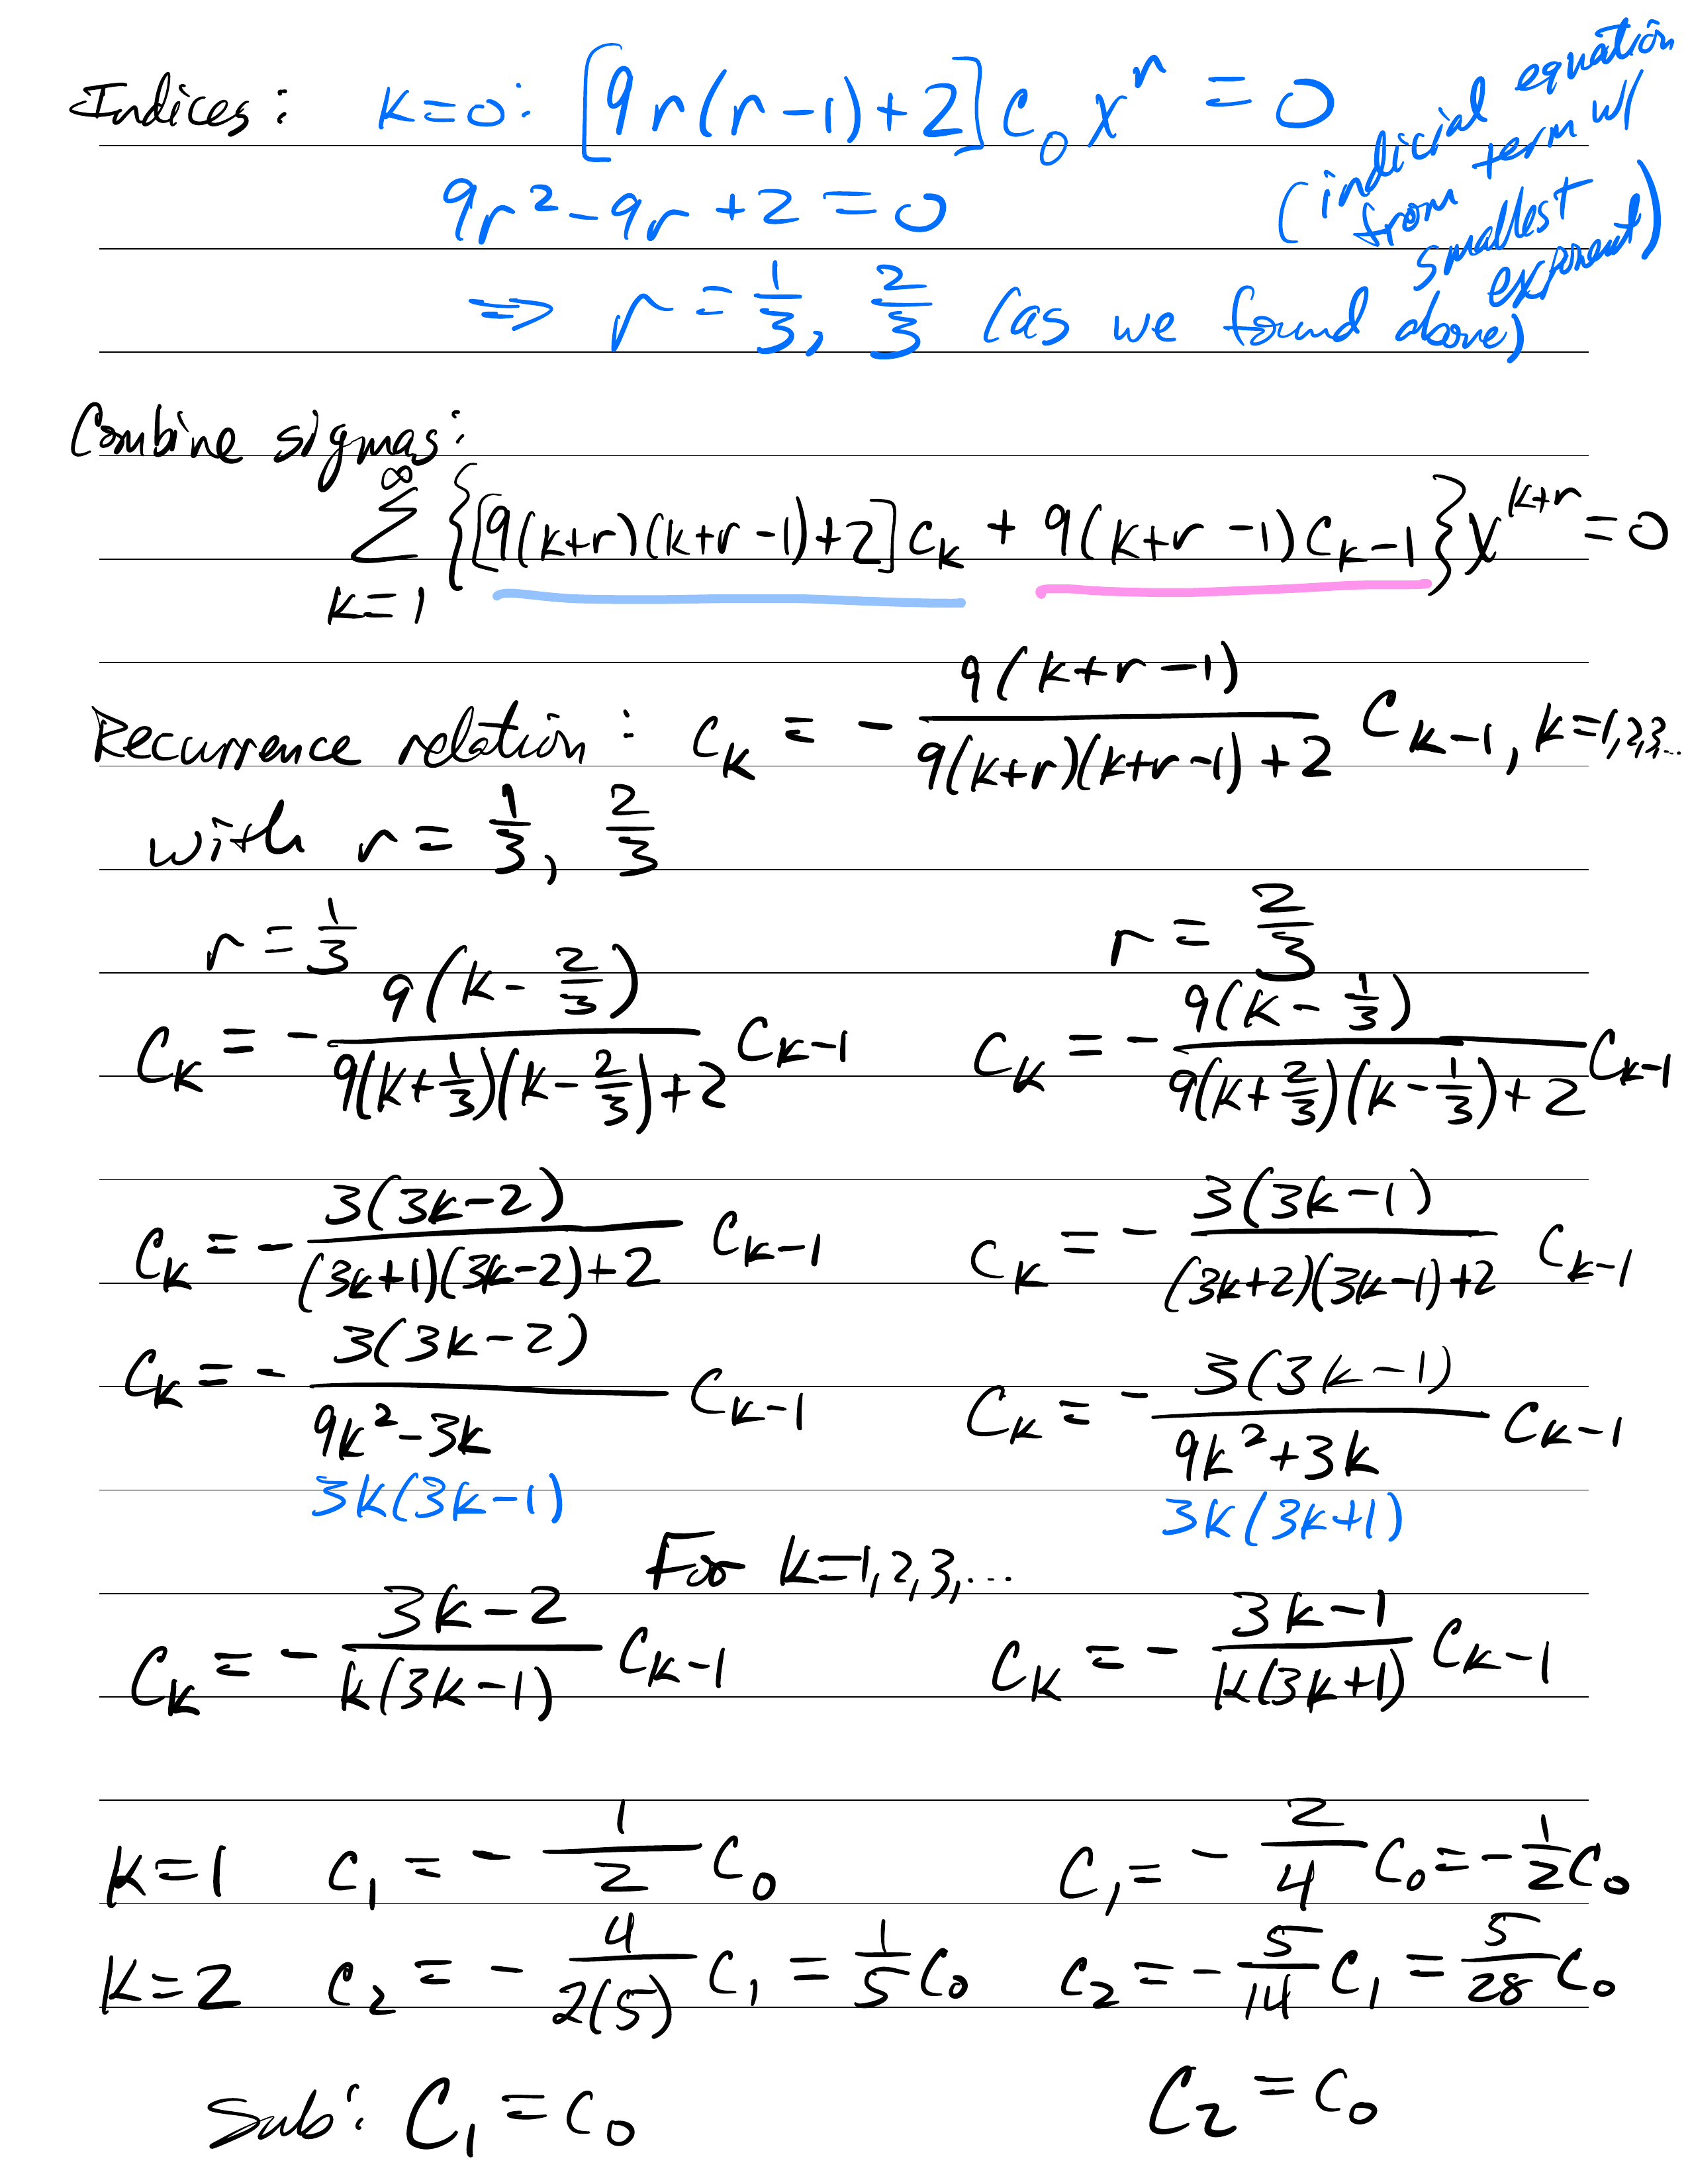 Indices: k=0: [9r(r-1)+2]c₀xʳ = 0
9r²-9r+2=0
(indicial equation
from term w/
smallest
exponent)
⇒ r = 1/3, 2/3 (as we found above)
Combine sigmas:
∞
∑ {[9(k+r)(k+r-1)+2]c_k + 9(k+r-1)c_{k-1}}x^{k+r} = 0
k=1
Recurrence relation: c_k = - 9(k+r-1) / (9(k+r)(k+r-1)+2) c_{k-1}, k=1,2,3,...
with r = 1/3, 2/3
r = 1/3    r = 2/3
c_k = - 9(k-2/3) / (9(k+1/3)(k-2/3)+2) c_{k-1}    c_k = - 9(k-1/3) / (9(k+2/3)(k-1/3)+2) c_{k-1}
c_k = - 3(3k-2) / ((3k+1)(3k-2)+2) c_{k-1}    c_k = - 3(3k-1) / ((3k+2)(3k-1)+2) c_{k-1}
c_k = - 3(3k-2) / (9k²-3k) c_{k-1}    c_k = - 3(3k-1) / (9k²+3k) c_{k-1}
3k(3k-1)    3k(3k+1)
For k=1,2,3,...
c_k = - (3k-2) / (k(3k-1)) c_{k-1}    c_k = - (3k-1) / (k(3k+1)) c_{k-1}
k=1  c₁ = - 1/2 c₀    c₁ = - 2/4 c₀ = - 1/2 c₀
k=2  c₂ = - 4/(2(5)) c₁ = 1/5 c₀    c₂ = - 5/14 c₁ = 5/28 c₀
Sub: C₁ = c₀    C₂ = c₀